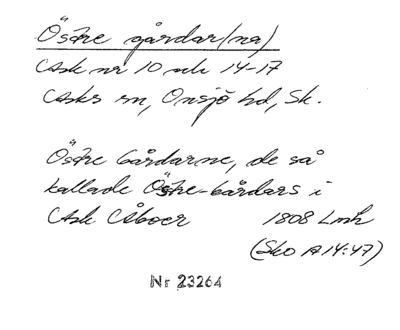 Östre gårdar(na)
Ask nr 10 och 14-17
Asks sn, Onsjö hd, Sk.
Östre Gårdarne, de så
kallade Östre-Gårdars i
Ask Åboer 1808 Lmh
(Sko A 14:47)
Nr 23264